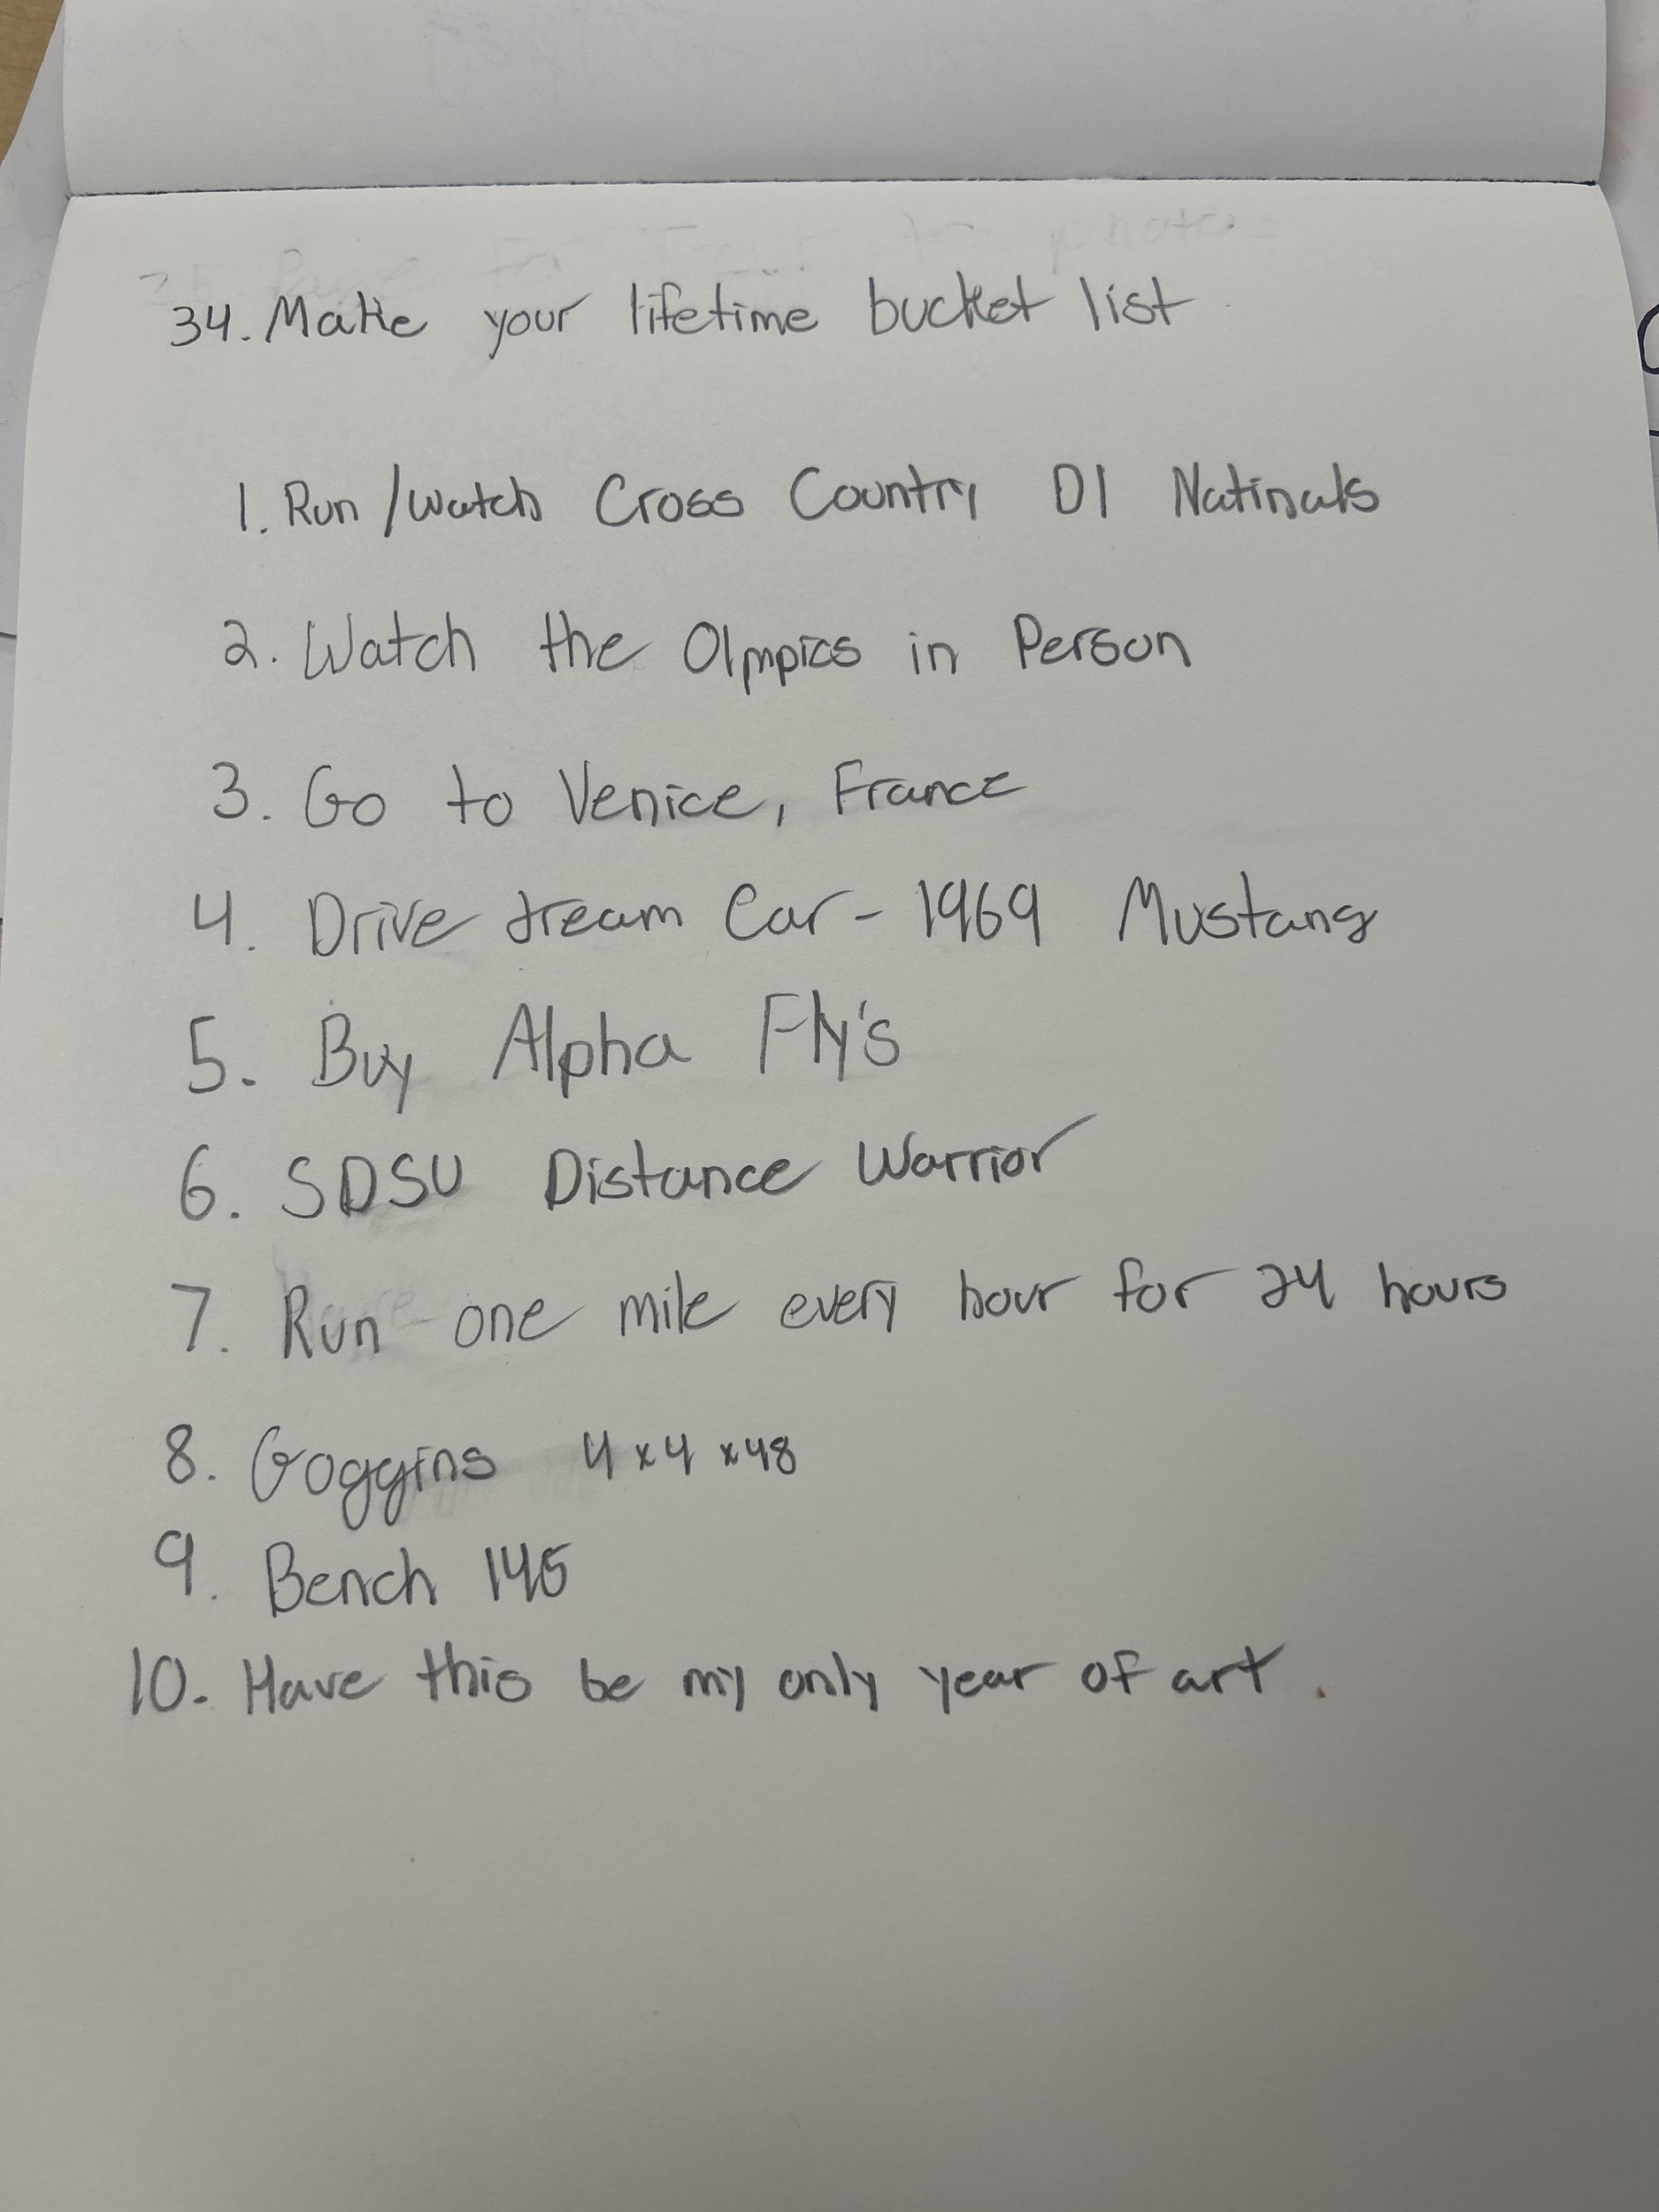 34. Make your lifetime bucket list
1. Run /watch Cross Country D1 Natinals
2. Watch the Olmpics in Person
3. Go to Venice, France
4. Drive dream Car - 1969 Mustang
5. Buy Alpha Fly's
6. SDSU Distance Warrior
7. Run one mile every hour for 24 hours
8. Goggins 4x4x48
9. Bench 145
10. Have this be my only year of art.